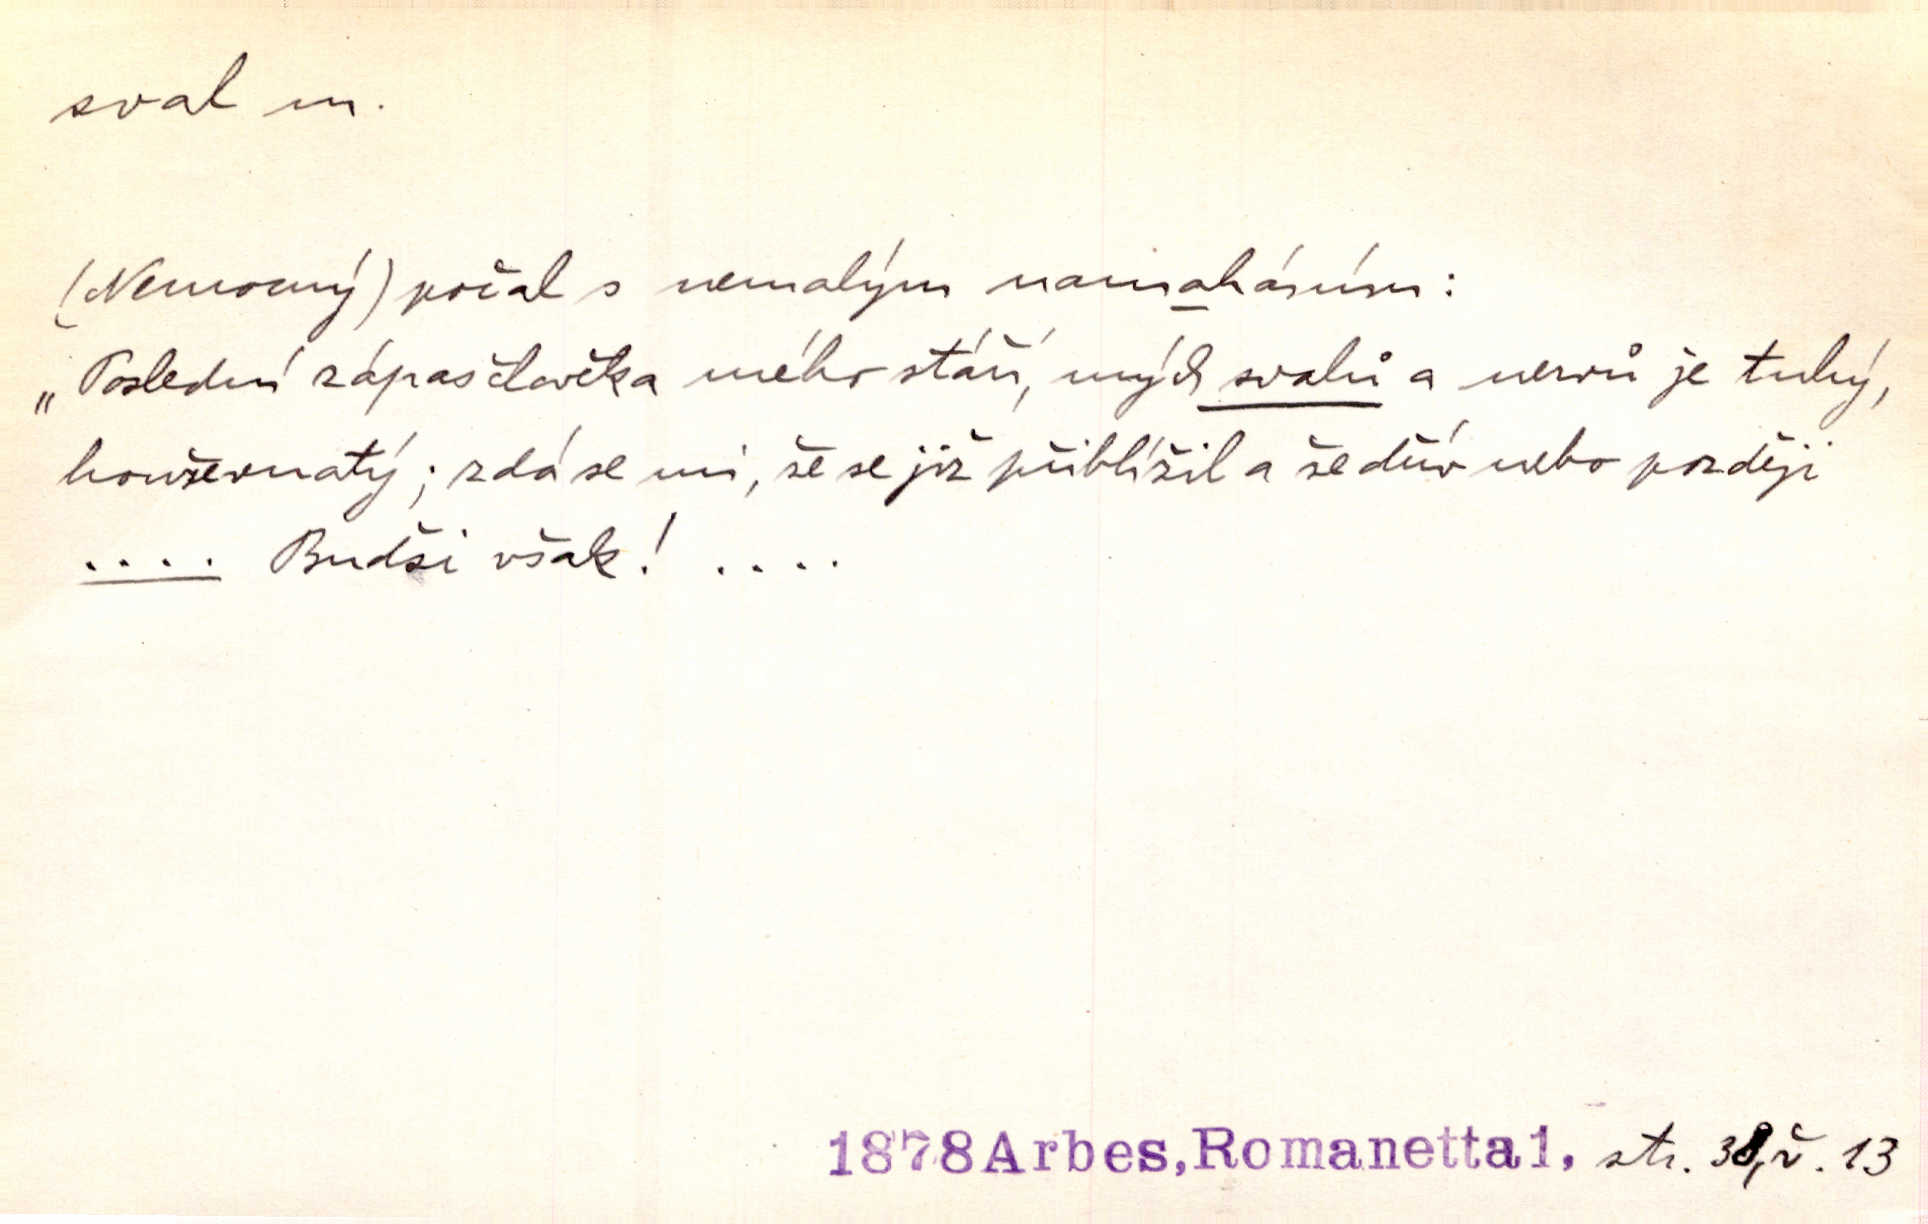 sval m.
(Nemocný) počal s nemalým namaháním:
„Poslední zápas člověka mého stáří, mých svalů a nervů je tuhý,
houževnatý; zdá se mi, že se již přiblížil a že dřív nebo později
.... Budši však! ....
1878 Arbes, Romanetta 1, str. 38, ř. 13